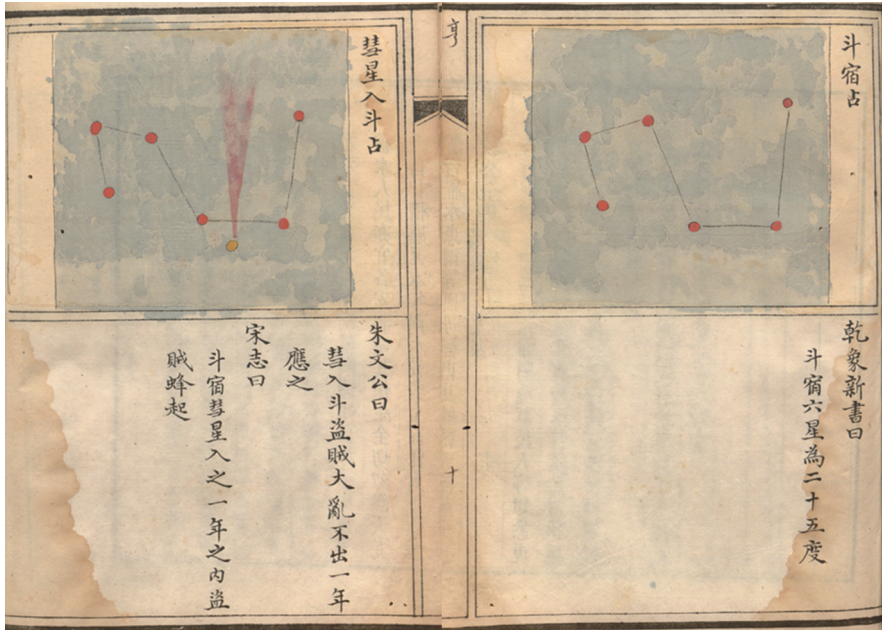 斗宿占
乾象新書曰
斗宿六星為二十五度
亨
十
彗星入斗占
朱文公曰
彗入斗盜賊大亂不出一年
應之
宋志曰
斗宿彗星入之一年之內盜
賊蜂起